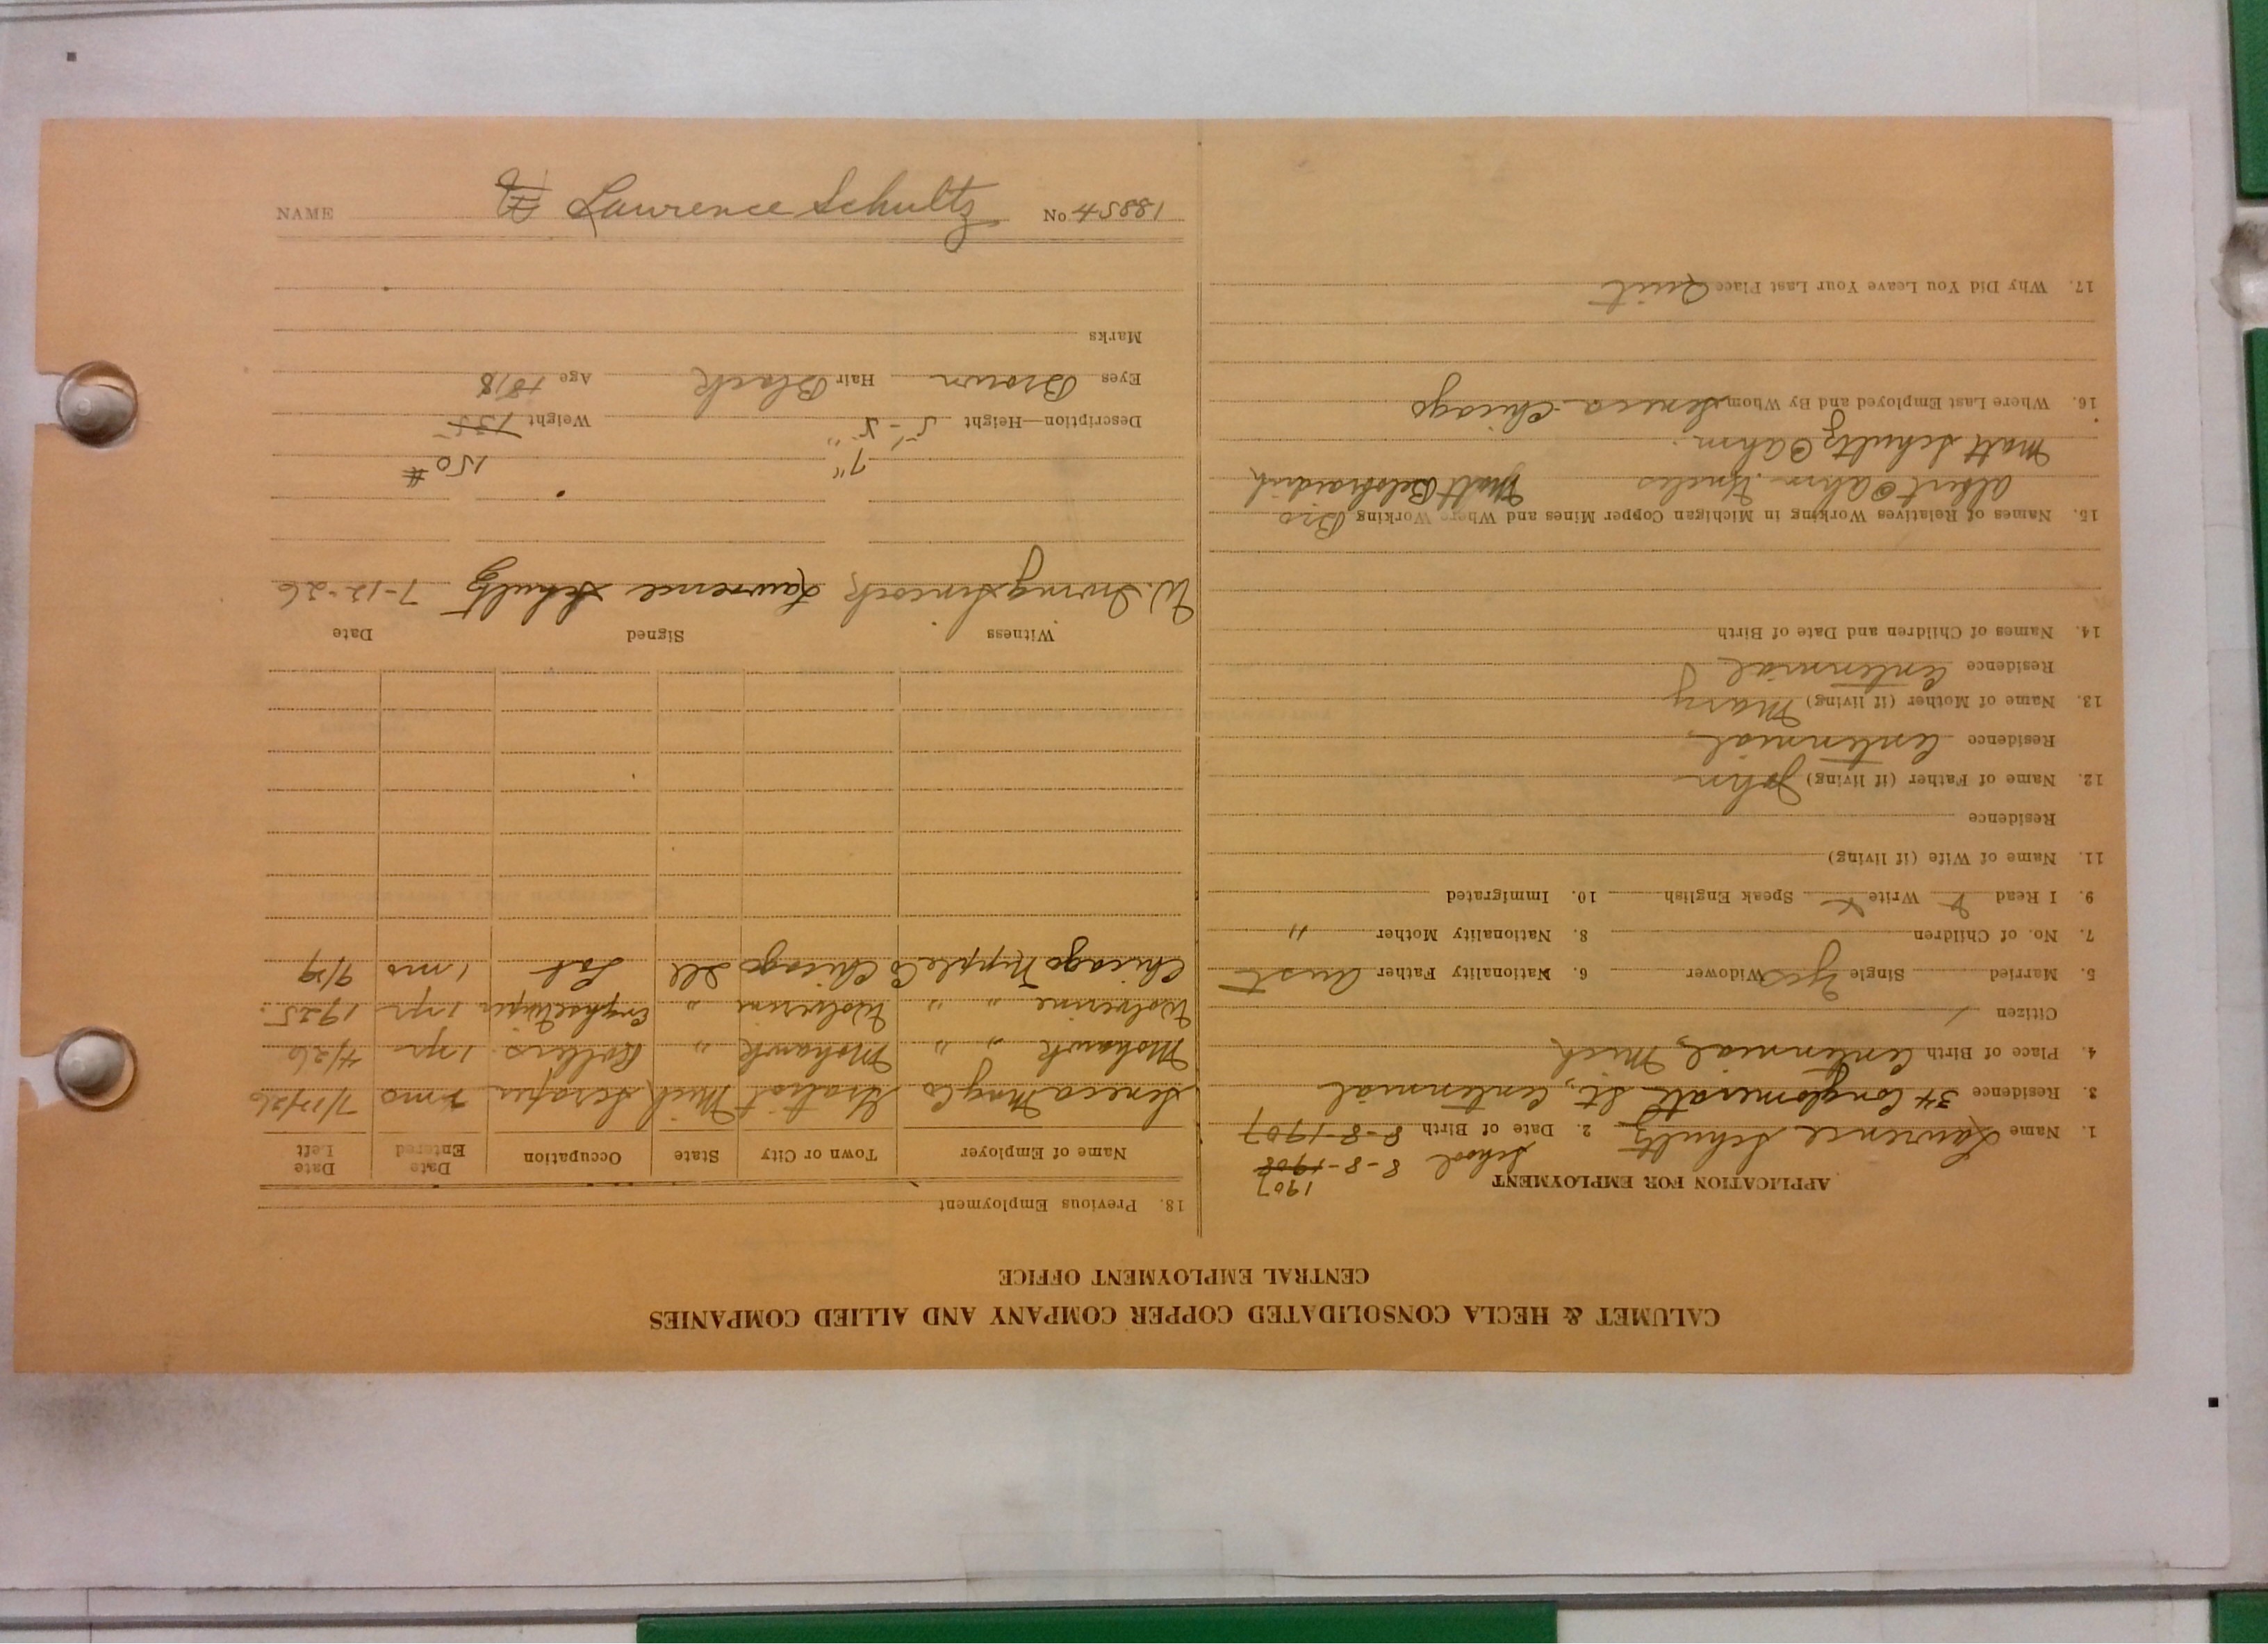 CALUMET & HECLA CONSOLIDATED COPPER COMPANY AND ALLIED COMPANIES
CENTRAL EMPLOYMENT OFFICE
APPLICATION FOR EMPLOYMENT
1907
School 8-8-1908
1. Name Lawrence Schultz 2. Date of Birth 8-8-1907
3. Residence 34 Conglomerate St., Centennial
4. Place of Birth Centennial, Mich
Citizen /
5. Married Single Yes Widower 6. Nationality Father Aust
7. No. of Children 8. Nationality Mother "
9. I Read Write Speak English 10. Immigrated
11. Name of Wife (if living)
Residence
12. Name of Father (if living) John
Residence Centennial
13. Name of Mother (if living) Mary
Residence Centennial
14. Names of Children and Date of Birth
15. Names of Relatives Working in Michigan Copper Mines and Where Working Bro
Albert Ahm. Uncles Matt
Matt Schultz Ahm.
16. Where Last Employed and By Whom Seneca - Chicago
17. Why Did You Leave Your Last Place Quit
18. Previous Employment
Name of Employer Town or City State Occupation Date Entered Date Left
Seneca Mng Co Gratiot Mich Scraper mo 7/17/26
Mohawk " " Mohawk " Rollers 1 yr 4/26
Wolverine " " Wolverine " 1 yr 1925
Chicago Nipple Co Chicago Ill Lab 1 mo
Witness Signed Date
W. Irving Sincock Lawrence Schultz 7-12-26
7" 150 #
Description—Height 5-5" Weight 135
Eyes Brown Hair Black Age 18
Marks
NAME Lawrence Schultz No 18854